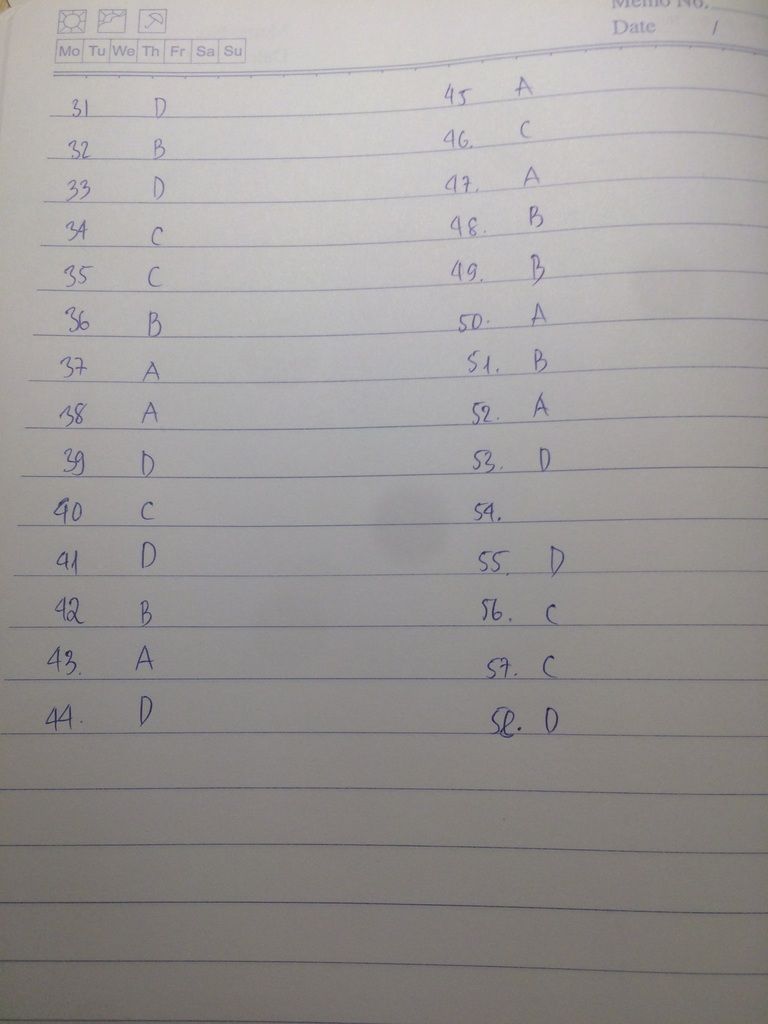 Memo No.
Date /
Mo Tu We Th Fr Sa Su
31 D
32 B
33 D
34 C
35 C
36 B
37 A
38 A
39 D
40 C
41 D
42 B
43. A
44. D
45 A
46. C
47. A
48. B
49. B
50. A
51. B
52. A
53. D
54.
55. D
56. C
57. C
58. D